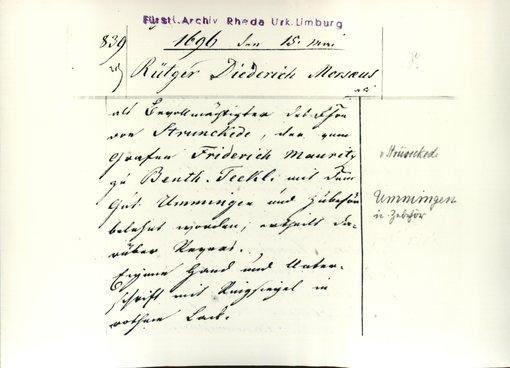 Fürstl. Archiv Rheda Urk. Limburg
839
1696 den 15. Mai
Rütger Diederich Morsaus
als Bevollmächtigter des Ehrn
von Strunckede, der vom
Grafen Friderich Mauritz
zu Benth. Teckl. mit dem
Gut Ummingen und Zubehör
belehnt worden, ertheilt da-
rüber Revers.
Eigene Hand und Unter-
schrift mit Ringsiegel in
rothem Lack.
v Strünckede
Ummingen
u. Zubehör